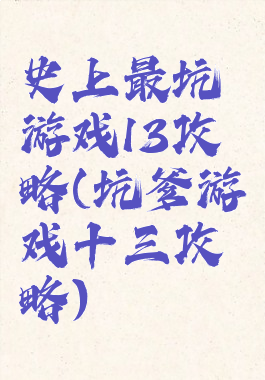 史上最坑
游戏13攻
略(坑爹游
戏十三攻
略)